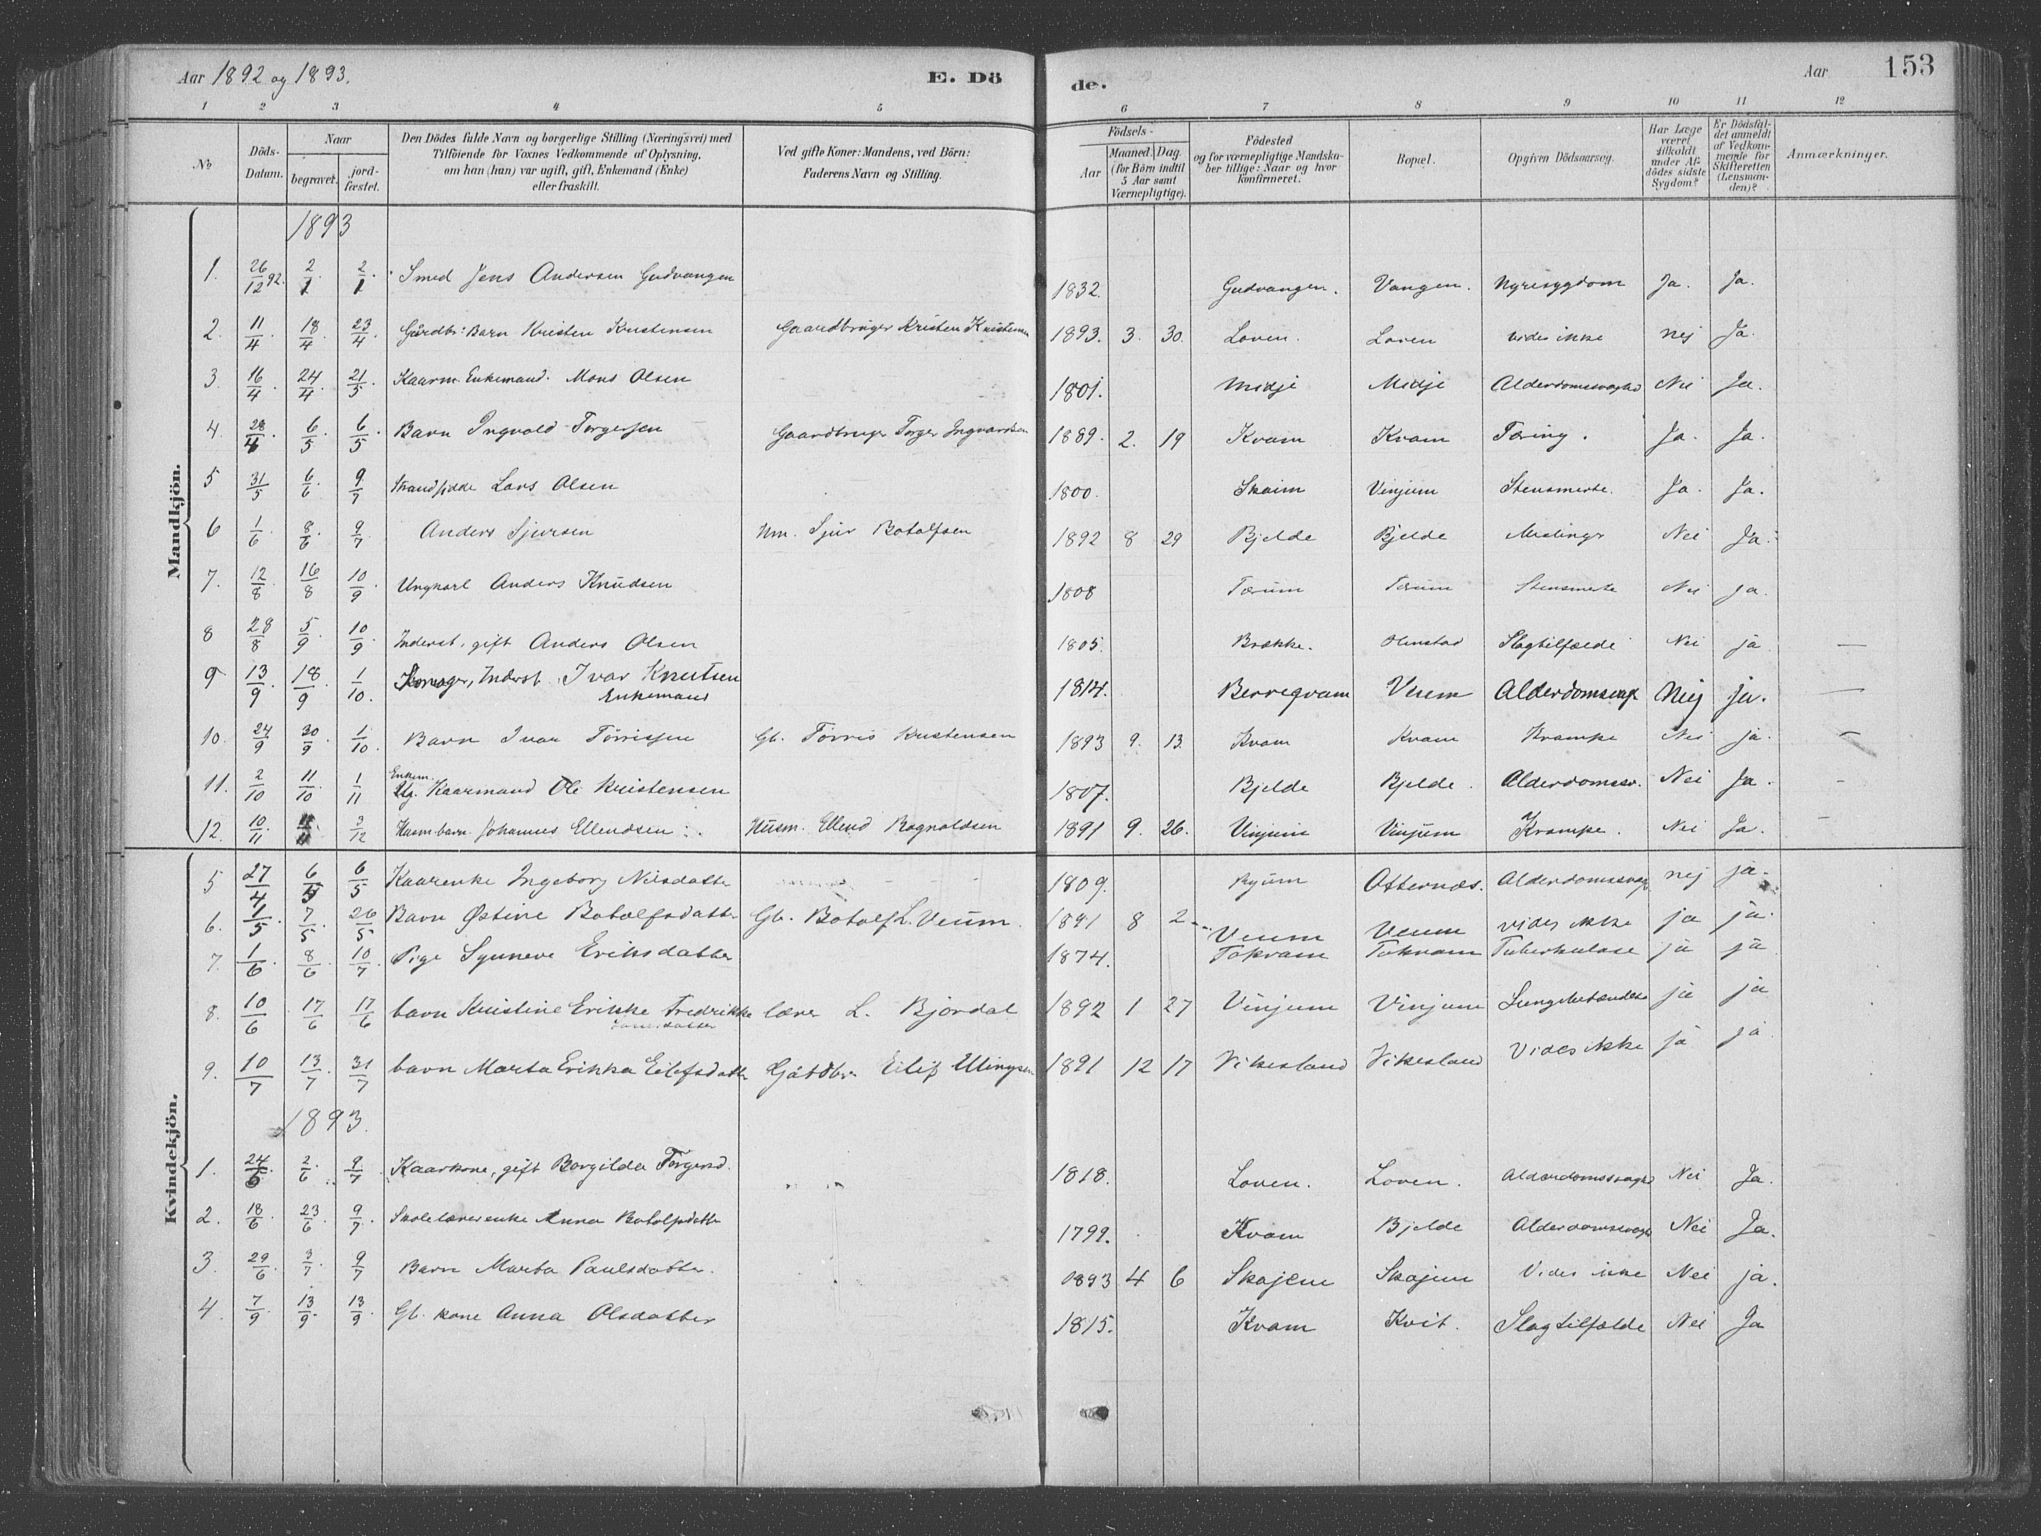 Aar 1892 og 1893. E. Dö de. Aar 153
1 2 3 4 5 6 7 8 9 10 11 12
№ Döds-Datum. Naar begravet. jordfæstet. Den Dödes fulde Navn og borgerlige Stilling (Næringsvei) med Tilföiende for Voxnes Vedkommende af Oplysning, om han (hun) var ugift, gift, Enkemand (Enke) eller fraskilt. Ved gifte Koner: Mandens, ved Börn: Faderens Navn og Stilling. Födsels- Aar Maaned. Dag. (for Börn indtil 5 Aar samt Værnepligtige). Födested og for værnepligtige Mandskaber tillige: Naar og hvor konfirmeret. Bopæl. Opgiven Dödsaarsag. Har Læge været tilkaldt under Afdödes sidste Sygdom? Er Dödsfaldet anmeldt af Vedkommende for Skifteretten (Lensmanden)? Anmærkninger.
Mandkjön.
1893
1. 26/12 92. 2/1. 2/1. Smed Jens Andersen Gudvangen 1832. Gudvangen. Vangen. Nyresygdom Ja. Ja.
2. 11/4 18/4. 23/4. Gårdbr: Barn Kristen Kristensen Gaardbruger Kristen Kristensen 1893. 3. 30. Loven. Loven vides ikke nej Ja.
3. 16/4 24/4. 21/5. Kaarm. Enkemand. Mons Olsen 1801. Midje Midje Alderdomssvaghd Nei Ja.
4. 28/4 6/5. 6/5 Barn Ingvald Torgersen Gaardbruger Torger Ingvardsen 1889. 2. 19 Kvam Kvam Tæring. Ja. Ja.
5 31/5 6/6. 9/7 Lars Olsen 1800. Skaim Vinjum Stensmerte. Ja. Ja.
6 1/6 8/6. 9/7. Anders Sjursen Hm. Sjur Botolfsen 1892 8 29 Bjelde Bjelde Meslinger Nei Ja.
7. 12/8 16/8 10/9. Ungkarl Anders Knudsen 1808 Tærum Tærum Stensmerte Nei Ja.
8 28/8 5/9. 10/9 Inderst, gift Anders Olsen 1805. Brække. Slagtilfælde Nei ja —
9 13/9 18/9 1/10. Inderst. Ivar Knutsen Enkemand 1814. Berreqvam Veum Alderdomsvagh Nej ja. —
10. 24/9 30/9 1/10. Barn Ivar Tørrissen Gb. Tørris Kristensen 1893 9. 13. Kvam Kvam Krampe Nei ja. —
11. 2/10 11/10. 1/11 Enkem. Kaarmand Ole Kristensen 1807. Bjelde Bjelde. Alderdomssv. Nei Ja. -
12. 10/11 3/12 Husm barn Johannes Ellendsen Husm. Ellend Ragnoldsen 1891 9. 26. Vinjum Vinjum Krampe. Nei Ja. -
Kvindekjön.
5 27/4 6/5 6/5 Kaarenke Ingeborg Nilsdatter 1809. Ryum Otternæs. Alderdomssvagh nej ja.
6. 1/5. 7/5. 26/5 Barn Østine Botolfsdatter Gb. Botolf L. Veum. 1891 8 2 Veum Veum vides ikke ja ja.
7. 1/6. 8/6 10/7 Pige Synneve Eriksdatter 1874. Tokvam Tokvam Tuberkulose ja ja
8. 10/6 17/6 17/6 barn Kristine Erikke Fredrikke lærer L. Bjørdal 1892 1 27 Vinjum Vinjum Lungebetændelse ja ja
9. 10/7 13/7. 31/7 barn Marta Erikka Eilefsdatter Gårdbr Eilif Ellingsen 1891 12 17 Vikesland Vikesland Vides ikke ja ja
1893.
1. 24/5. 2/6. 9/7 Kaarkone, gift Borgilda Torgersd. 1818. Loven. Loven. Alderdomssvaghd Nei Ja.
2. 18/6 23/6 9/7. Skolelærerenke Anna Botolfsdatter 1799. Kvam Bjelde Alderdomssvagh Nei Ja.
3. 29/6. 3/7. 9/7 Barn Marta Paulsdatter. 1893 4 6 Skajem Skajem Vides ikke Nei ja.
4. 7/9 13/9. 13/9. Gb. kone Anna Olsdatter 1815. Kvam Kvit. Slagtilfælde Nei Ja